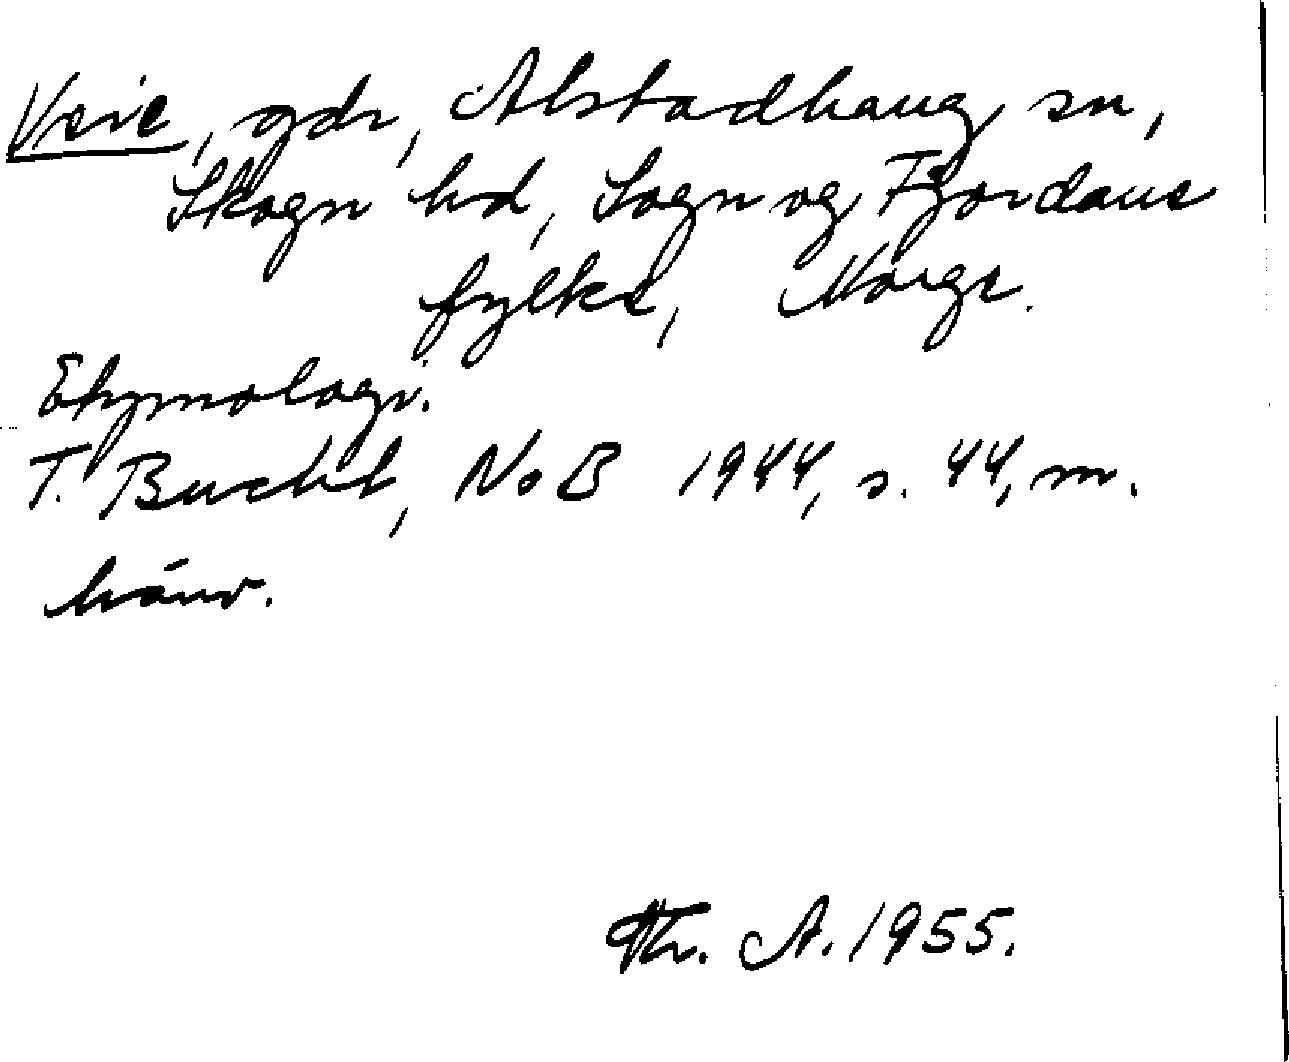 Veie, gdr, Alstadhaug sn,
Skogn hd, Sogn og Fjordane
fylke, Norge.
Etymologi.
T. Bucht, NoB 1944, s. 44, m.
hänv.
Th. A. 1955.